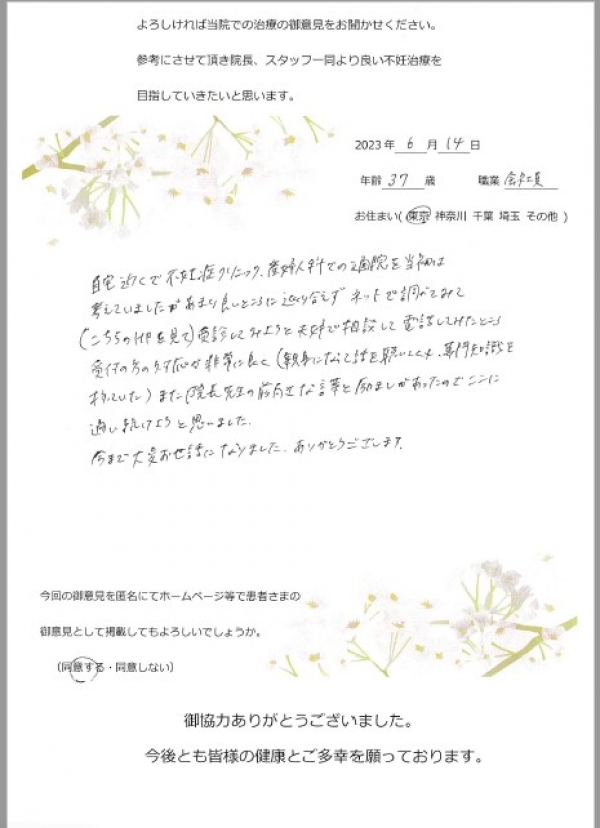 よろしければ当院での治療の御意見をお聞かせください。
参考にさせて頂き院長、スタッフ一同より良い不妊治療を
目指していきたいと思います。
2023 年 6 月 14 日
年齢 37 歳 職業 会社員
お住まい( 東京 神奈川 千葉 埼玉 その他 )
自宅近くで不妊症クリニック、産婦人科での通院を当初は
考えていましたがあまり良いところに巡り合えず ネットで調べてみて
(こちらのHPを見て) 受診してみようと夫婦で相談して 電話してみたところ
受付の方の対応が非常に良く (親身になって話を聴いてくれ、専門知識を
持っていた) また院長先生の 言葉と励ましがあったのでここに
通い続けようと思いました。
今まで大変お世話になりました。ありがとうございます。
今回の御意見を匿名にてホームページ等で患者さまの
御意見として掲載してもよろしいでしょうか。
(同意する・同意しない)
御協力ありがとうございました。
今後とも皆様の健康とご多幸を願っております。